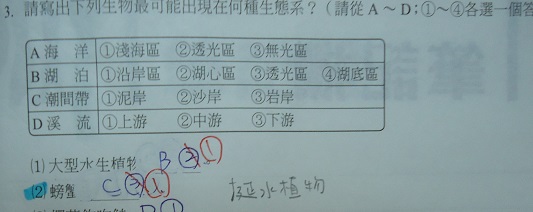 3. 請寫出下列生物最可能出現在何種生態系？（請從 A ～ D；①～④各選一個答
A 海 洋 ①淺海區 ②透光區 ③無光區
B 湖 泊 ①沿岸區 ②湖心區 ③透光區 ④湖底區
C 潮間帶 ①泥岸 ②沙岸 ③岩岸
D 溪 流 ①上游 ②中游 ③下游
(1) 大型水生植物 B ①
(2) 螃蟹 C ① 挺水植物
D ①